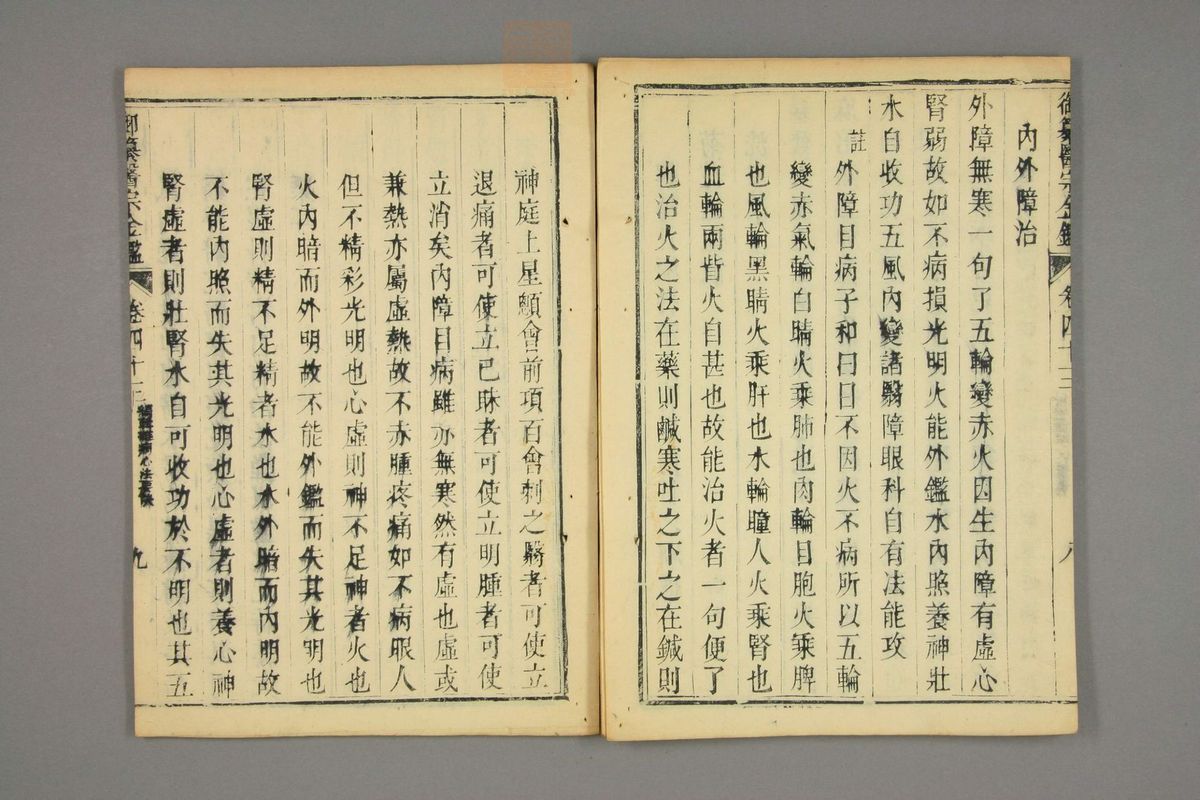 御纂醫宗金鑑 卷四十三 八
內外障治
外障無寒一句了五輪變赤火因生內障有虛心
腎弱故如不病損光明火能外鑑水內照養神壯
水自收功五風內變諸翳障眼科自有法能攻
註 外障目病子和曰目不因火不病所以五輪
變赤氣輪白睛火乘肺也肉輪目胞火乘脾
也風輪黑睛火乘肝也水輪瞳人火乘腎也
血輪兩眥火自甚也故能治火者一句便了
也治火之法在藥則鹹寒吐之下之在鍼則
神庭上星顖會前項百會刺之翳者可使立
退痛者可使立已昧者可使立明腫者可使
立消矣內障目病雖亦無寒然有虛也虛或
兼熱亦屬虛熱故不赤腫疼痛如不病眼人
但不精彩光明也心虛則神不足神者火也
火內暗而外明故不能外鑑而失其光明也
腎虛則精不足精者水也水外暗而內明故
不能內照而失其光明也心虛者則養心神
腎虛者則壯腎水自可收功於不明也其五
御纂醫宗金鑑 卷四十三 九